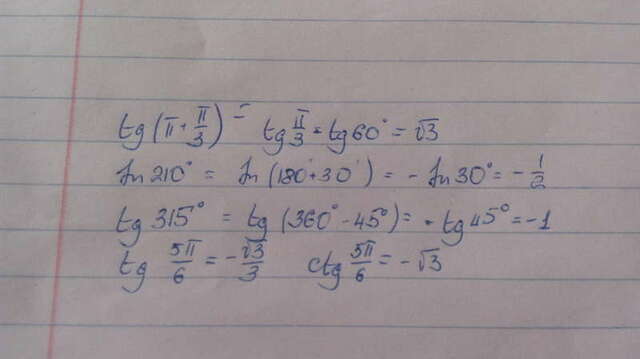 tg(π+π/3) = tg π/3 = tg 60° = √3
sin 210° = sin(180°+30°) = - sin 30° = - 1/2
tg 315° = tg (360° - 45°) = - tg 45° = -1
tg 5π/6 = - √3/3 ctg 5π/6 = - √3